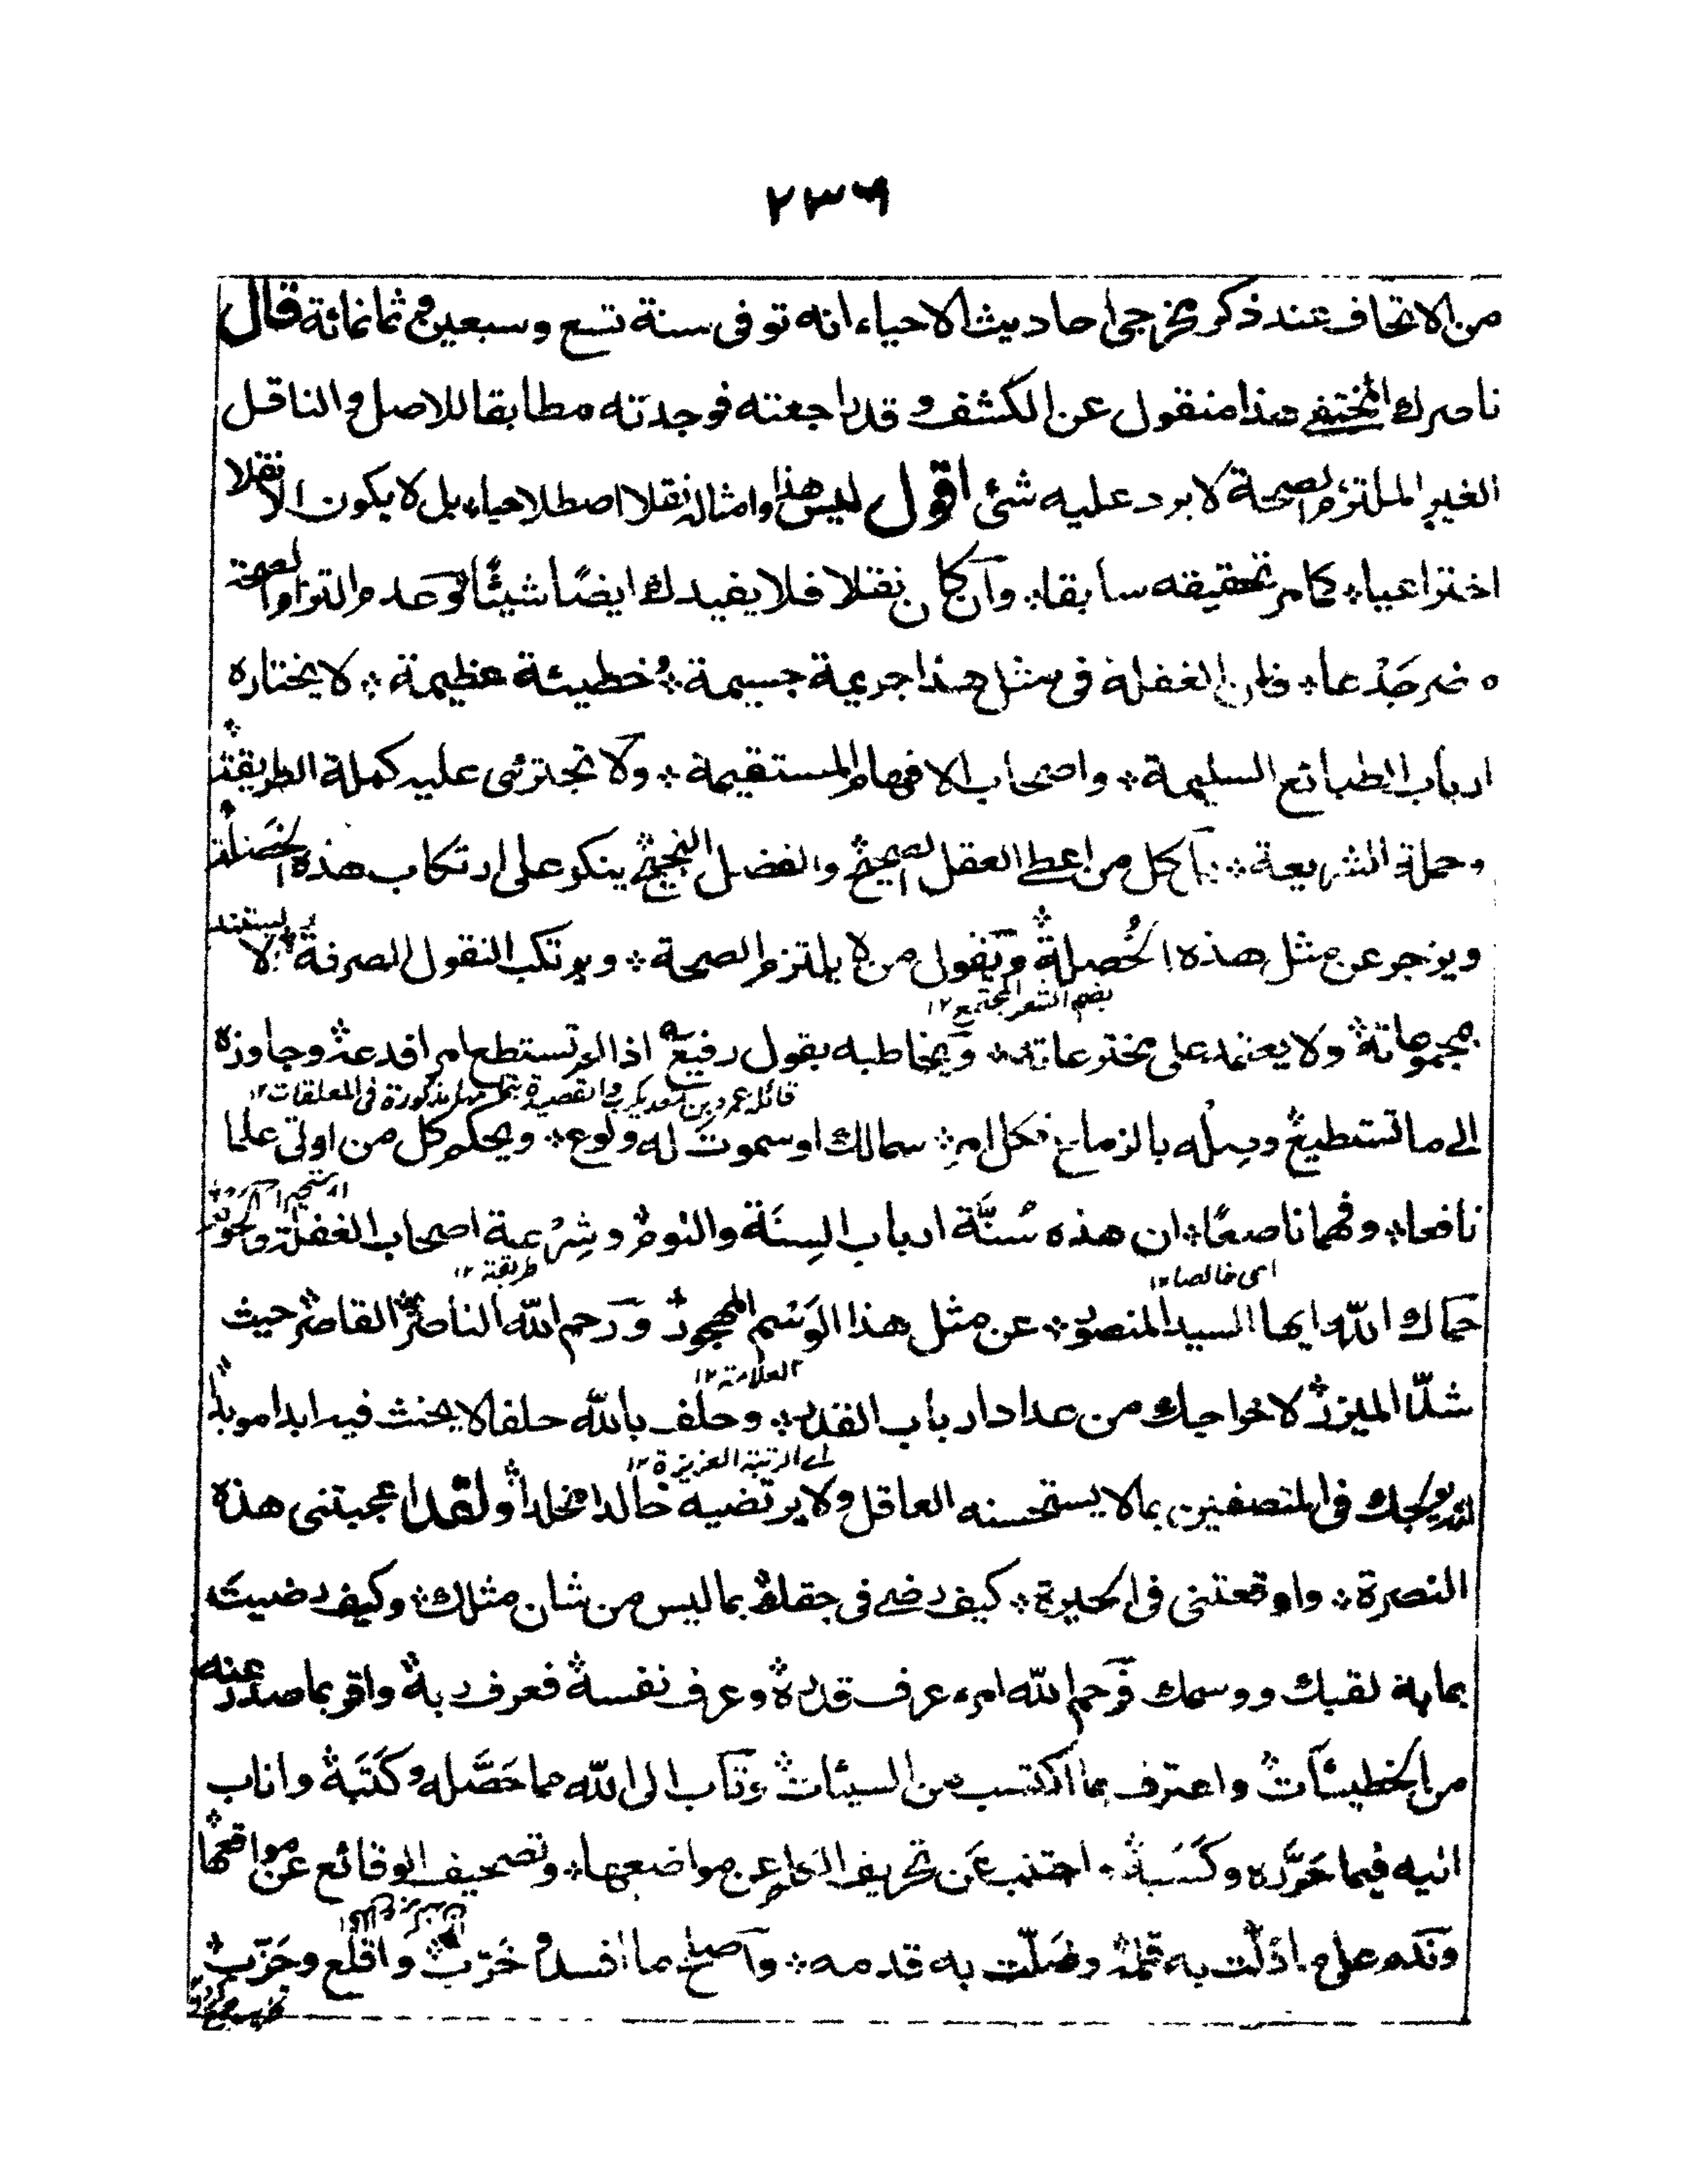 ٢٣٦
من الاتحاف عند ذكر مخرجى احاديث الاحياء انه توفى سنة تسع وسبعين وثمانمائة قال
ناصرك المختفى هذا منقول عن الكشف وقد راجعته فوجدته مطابقا للاصل والناقل
الغير الملتزم لصحة لا يرد عليه شئ اقول ليس هذا وامثاله نقلا اصطلاحيا بل لا يكون الا نقلا
اختراعيا كما مر تحقيقه سابقا وان كان نقلا فلا يفيدك ايضا شيئا وعدم التزام الصحة
فان الغفلة فى مثل هذا جريمة جسيمة وخطيئة عظيمة لا يختاره
ارباب الطبائع السليمة واصحاب الافهام المستقيمة ولا تجترئ عليه كملة الطريقة
وحملة الشريعة بل كل من اعطى العقل الصحيح والفضل النجيح ينكر على ارتكاب هذه الخصلة
ويزجر عن مثل هذه الخُصلة ويقول من لا يلتزم الصحة ويرتكب النقول الصرفة لا يستند
بضم الشعر المجتمع ١٢
بمجموعاته ولا يعتمد على مخترعاته ويخاطبه بقول رفيع اذا لم تستطع امرا فدعه وجاوزه
قائله عمرو بن معديكرب والقصيدة بتمامها مذكورة فى المعلقات ١٢
الى ما تستطيع وصِلْه بالزماع فكل امر سما لك او سموت له ولوع ويحكم كل من اوتى علما
نافعا وفهما ناصعًا ان هذه سُنَّة ارباب السِنَة والنوم وشِرْعة اصحاب الغفلة
اى خالصا ١٢ طريقة ١٢
حماك الله ايها السيد المنصور عن مثل هذا الوَسْم المهجور ورحم الله الناصر القاصر حيث
العلامة ١٢
شدّ الميزر لاخراجك من عداد ارباب القدر وحلف بالله حلفا لا يحنث فيه ابدا موبدا
اى الرتبة العزيزة ١٢
فى المتصفين بما لا يستحسنه العاقل ولا يرتضيه خالدا مخلدا ولقد اعجبتنى هذه
النصرة واوقعتنى فى الحيرة كيف رضى فى حقك بما ليس من شان مثلك وكيف رضيتَ
بما به لقبك ووسمك فرحم الله امرء عرف قدره وعرف نفسه فعرف ربه واقر بما صدر عنه
من الخطيئات واعترف بما اكتسب من السيئات وتاب الى الله مما حَصَّله وكَتَبَه واناب
اليه فيما حَرَّره وكَسَبَه اجتنب عن تحريف الكلم عن مواضعها وتصحيف الوقائع عن مواقعها
وندم على ما ذلّت به قلمه وضلّت به قدمه واصلح ما افسد وخَرّب واقلع وحَزّب